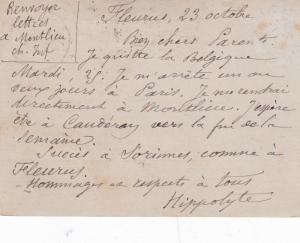 Renvoyer
lettres
à Montlieu
ch. Inf
Fleurus, 23 octobre
Bien chers Parents
Je quitte la Belgique
Mardi, 25. Je m'arrête un ou
deux jours à Paris. Je me rendrai
directement à Montlieu. J'espère
être à Caudéran vers la fin de la
semaine.
Succès à Sorinnes, comme à
Fleurus.
Hommages et respects à tous
Hippolyte